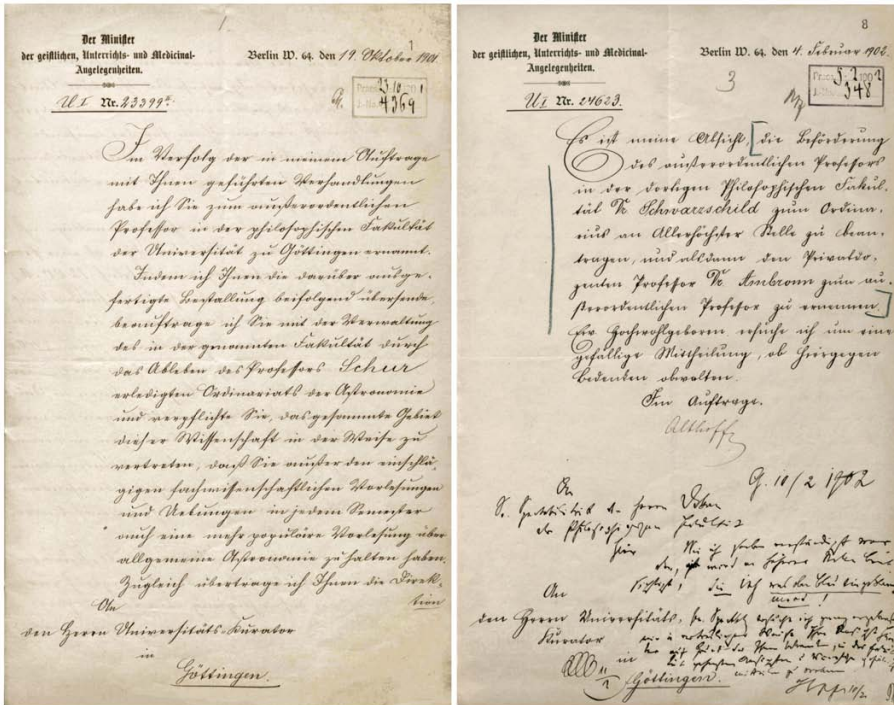 1
Der Minister
der geistlichen, Unterrichts- und Medicinal-
Angelegenheiten.
Berlin W. 64. den 19. Oktober 1901
U. I Nr. 23399
23.10.
4369
Im Verfolg der in meinem Auftrage
mit Ihnen geführten Verhandlungen
habe ich Sie zum außerordentlichen
Professor in der philosophischen Fakultät
der Universität zu Göttingen ernannt.
Indem ich Ihnen die darüber ausge-
fertigte Bestallung beifolgend übersende,
beauftrage ich Sie mit der Verwaltung
des in der genannten Fakultät durch
das Ableben des Professors Schur
erledigten Ordinariats der Astronomie
und verpflichte Sie, das gesammte Gebiet
dieser Wissenschaft in der Weise zu
vertreten, daß Sie außer den einschlä-
gigen fachwissenschaftlichen Vorlesungen
und Uebungen in jedem Semester
auch eine mehr populäre Vorlesung über
allgemeine Astronomie zu halten haben.
Zugleich übertrage ich Ihnen die Direk-
tion
An
den Herrn Universitäts-Kurator
in
Göttingen.
8
Der Minister
der geistlichen, Unterrichts- und Medicinal-
Angelegenheiten.
Berlin W. 64. den 4. Februar 1902.
3
U. I Nr. 24623.
5. 2. 1902
348
Es ist meine Absicht, die Beförderung
des außerordentlichen Professors
in der dortigen Philosophischen Fakul-
tät Dr. Schwarzschild zum Ordina-
rius an Allerhöchster Stelle zu bean-
tragen, und alsdann den Privatdo-
zenten Professor Dr. Ambronn zum au-
ßerordentlichen Professor zu ernennen.
Ew. Hochwohlgeboren ersuche ich um eine
gefällige Mittheilung, ob hiergegen
Bedenken obwalten.
Im Auftrage.
Althoff
G. 10/2 1902
An
den Herrn Dekan
der Philosophischen Fakultät
Hier
An
den Herrn Universitäts-
Kurator
in
Göttingen.